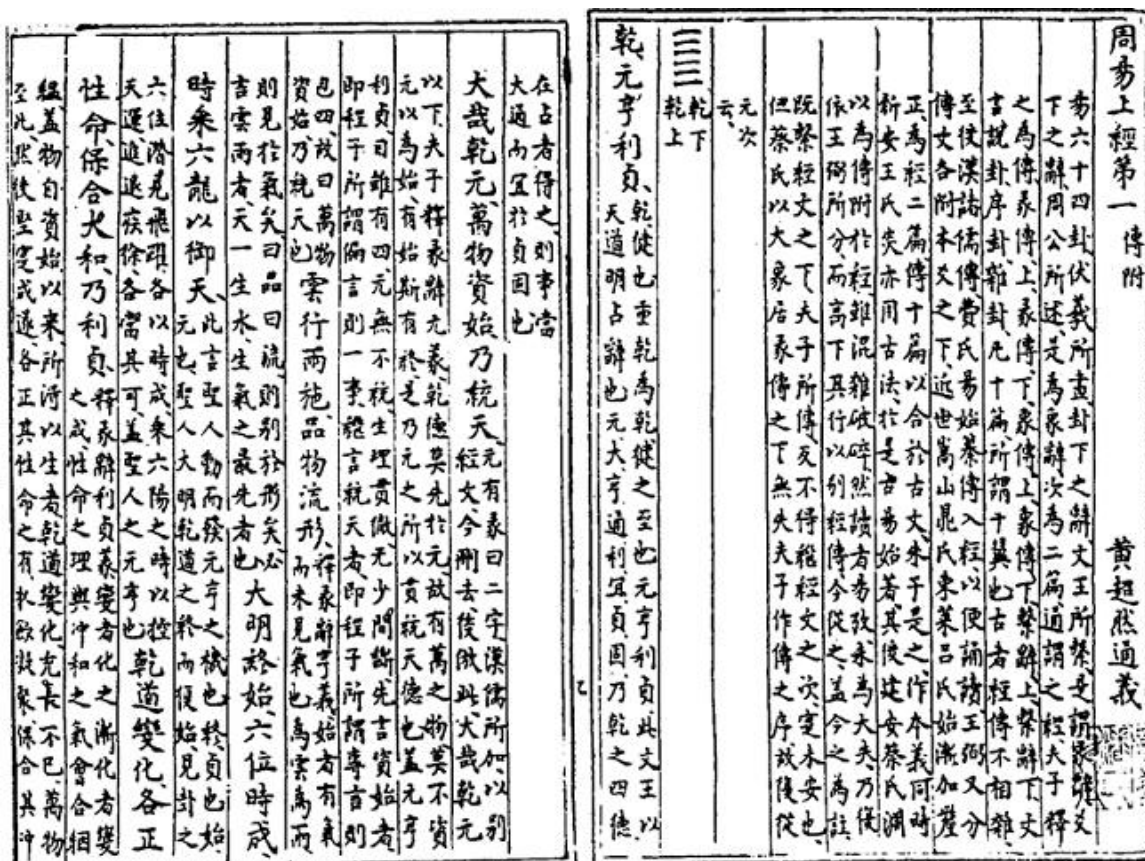 周易上經第一 傳附 黃超然通義
易六十四卦伏羲所畫卦下之辭文王所繫是謂彖辭爻
下之辭周公所述是為象辭次為二篇通謂之經夫子釋
之為傳彖傳上彖傳下象傳上象傳下繫辭上繫辭下文
言說卦序卦雜卦凡十篇所謂十翼也古者經傳不相雜
至後漢諸儒傳費氏易始傳入經以便誦讀王弼又分
傳文各附本爻之下近世嵩山晁氏東萊呂氏始漸加釐
正為經二篇傳十篇以合於古文朱子是之作本義同時
新安王氏炎亦用古法於是古易始著其後建安蔡氏淵
以為傳附於經雖混雜破碎然讀者易攷未為大失乃復
依王弼所分而高下其行以別經傳今從之蓋今之為註
既繫經文之下夫子所傳反不得繼經文之次寔未安也
但蔡氏以大象居彖傳之下無失夫子作傳之序故復從
元次
云
乾下
乾上
乾元亨利貞、乾健也重乾為乾健之至也元亨利貞此文王以
天道明占辭也元大亨通利宜貞固乃乾之四德
在占者得之則事當
大通而宜於貞固也
大哉乾元、萬物資始、乃統天、元有彖曰二字漢儒所加、以別
經文、今刪去後倣此大哉乾元
以下夫子釋彖辭元義、乾德莫先於元、故有萬之物莫不資
元以為始、有始斯有終、是乃元之所以貫統天德也蓋元亨
利貞曰雖有四元無不統、生理貫徹、元少間斷、先言資始者
即程子所謂偏言則一事、繼言統天者、即程子所謂專言則
包四、故曰萬物
資始、乃統天也
雲行雨施、品物流形、釋彖辭亨義、始者有氣
而未見氣也為雲為雨
則見於氣矣曰品曰流、則別於形矣必
言雲雨者、天一生水、生氣之最先者也
大明終始、六位時成、
時乘六龍以御天、此言聖人動而發元亨之機也終貞也始
元也聖人大明乾道之終而復始、見卦之
六位潛見飛躍、各以時成、乘六陽之時以控
天運進退疾徐、各當其可、蓋聖人之元亨也
乾道變化、各正
性命、保合大和、乃利貞、釋彖辭利貞義變者化之漸化者變
之成性命之理與沖和之氣會合絪
縕、蓋物自資始以來所得以生者乾道變化、充長不已、萬物
至此、然後堅定成遂、各正其性命之有於斂聚、保合其沖